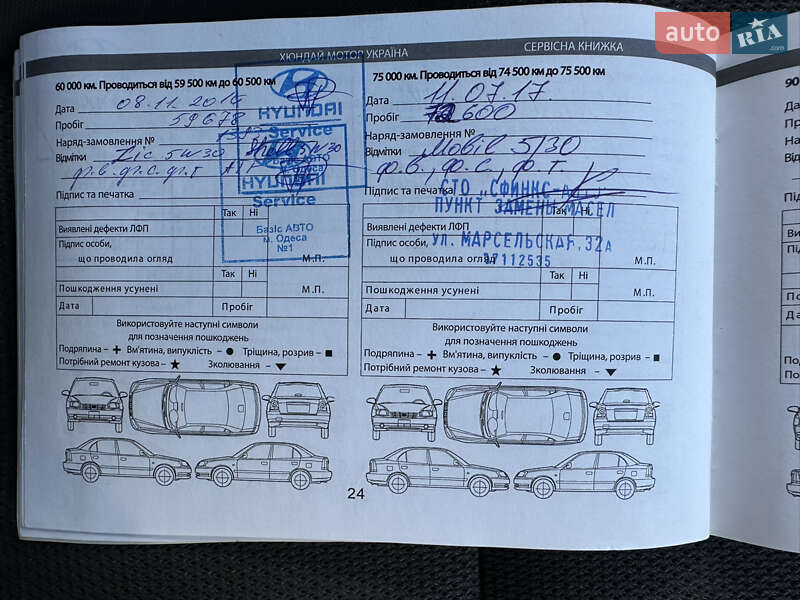 auto RIA.com
ХЮНДАЙ МОТОР УКРАЇНА
СЕРВІСНА КНИЖКА
60 000 км. Проводиться від 59 500 км до 60 500 км
Дата 08.11.2016
Пробіг 59678
Наряд-замовлення №
Відмітки Zic 5w30 Shell 5w30
ф.в. ф.с. ф.т
Підпис та печатка
HYUNDAI
Service
HYUNDAI
Service
Basic АВТО
м. Одеса
№1
Так Ні
Виявлені дефекти ЛФП
Підпис особи,
що проводила огляд М.П.
Так Ні
Пошкодження усунені М.П.
Дата Пробіг
Використовуйте наступні символи
для позначення пошкоджень
Подряпина – + Вм'ятина, випуклість – ● Тріщина, розрив – ■
Потрібний ремонт кузова – ★ Зколювання – ▼
75 000 км. Проводиться від 74 500 км до 75 500 км
Дата 11.07.17.
Пробіг 600
Наряд-замовлення №
Відмітки Mobil 5/30
ф.в., ф.с., ф.т.
Підпис та печатка
СТО „СФИНКС-
ПУНКТ ЗАМЕНЫ МАСЕЛ
УЛ. МАРСЕЛЬСКАЯ, 32А
37112535
Так Ні
Виявлені дефекти ЛФП
Підпис особи,
що проводила огляд М.П.
Так Ні
Пошкодження усунені М.П.
Дата Пробіг
Використовуйте наступні символи
для позначення пошкоджень
Подряпина – + Вм'ятина, випуклість – ● Тріщина, розрив – ■
Потрібний ремонт кузова – ★ Зколювання – ▼
24
90